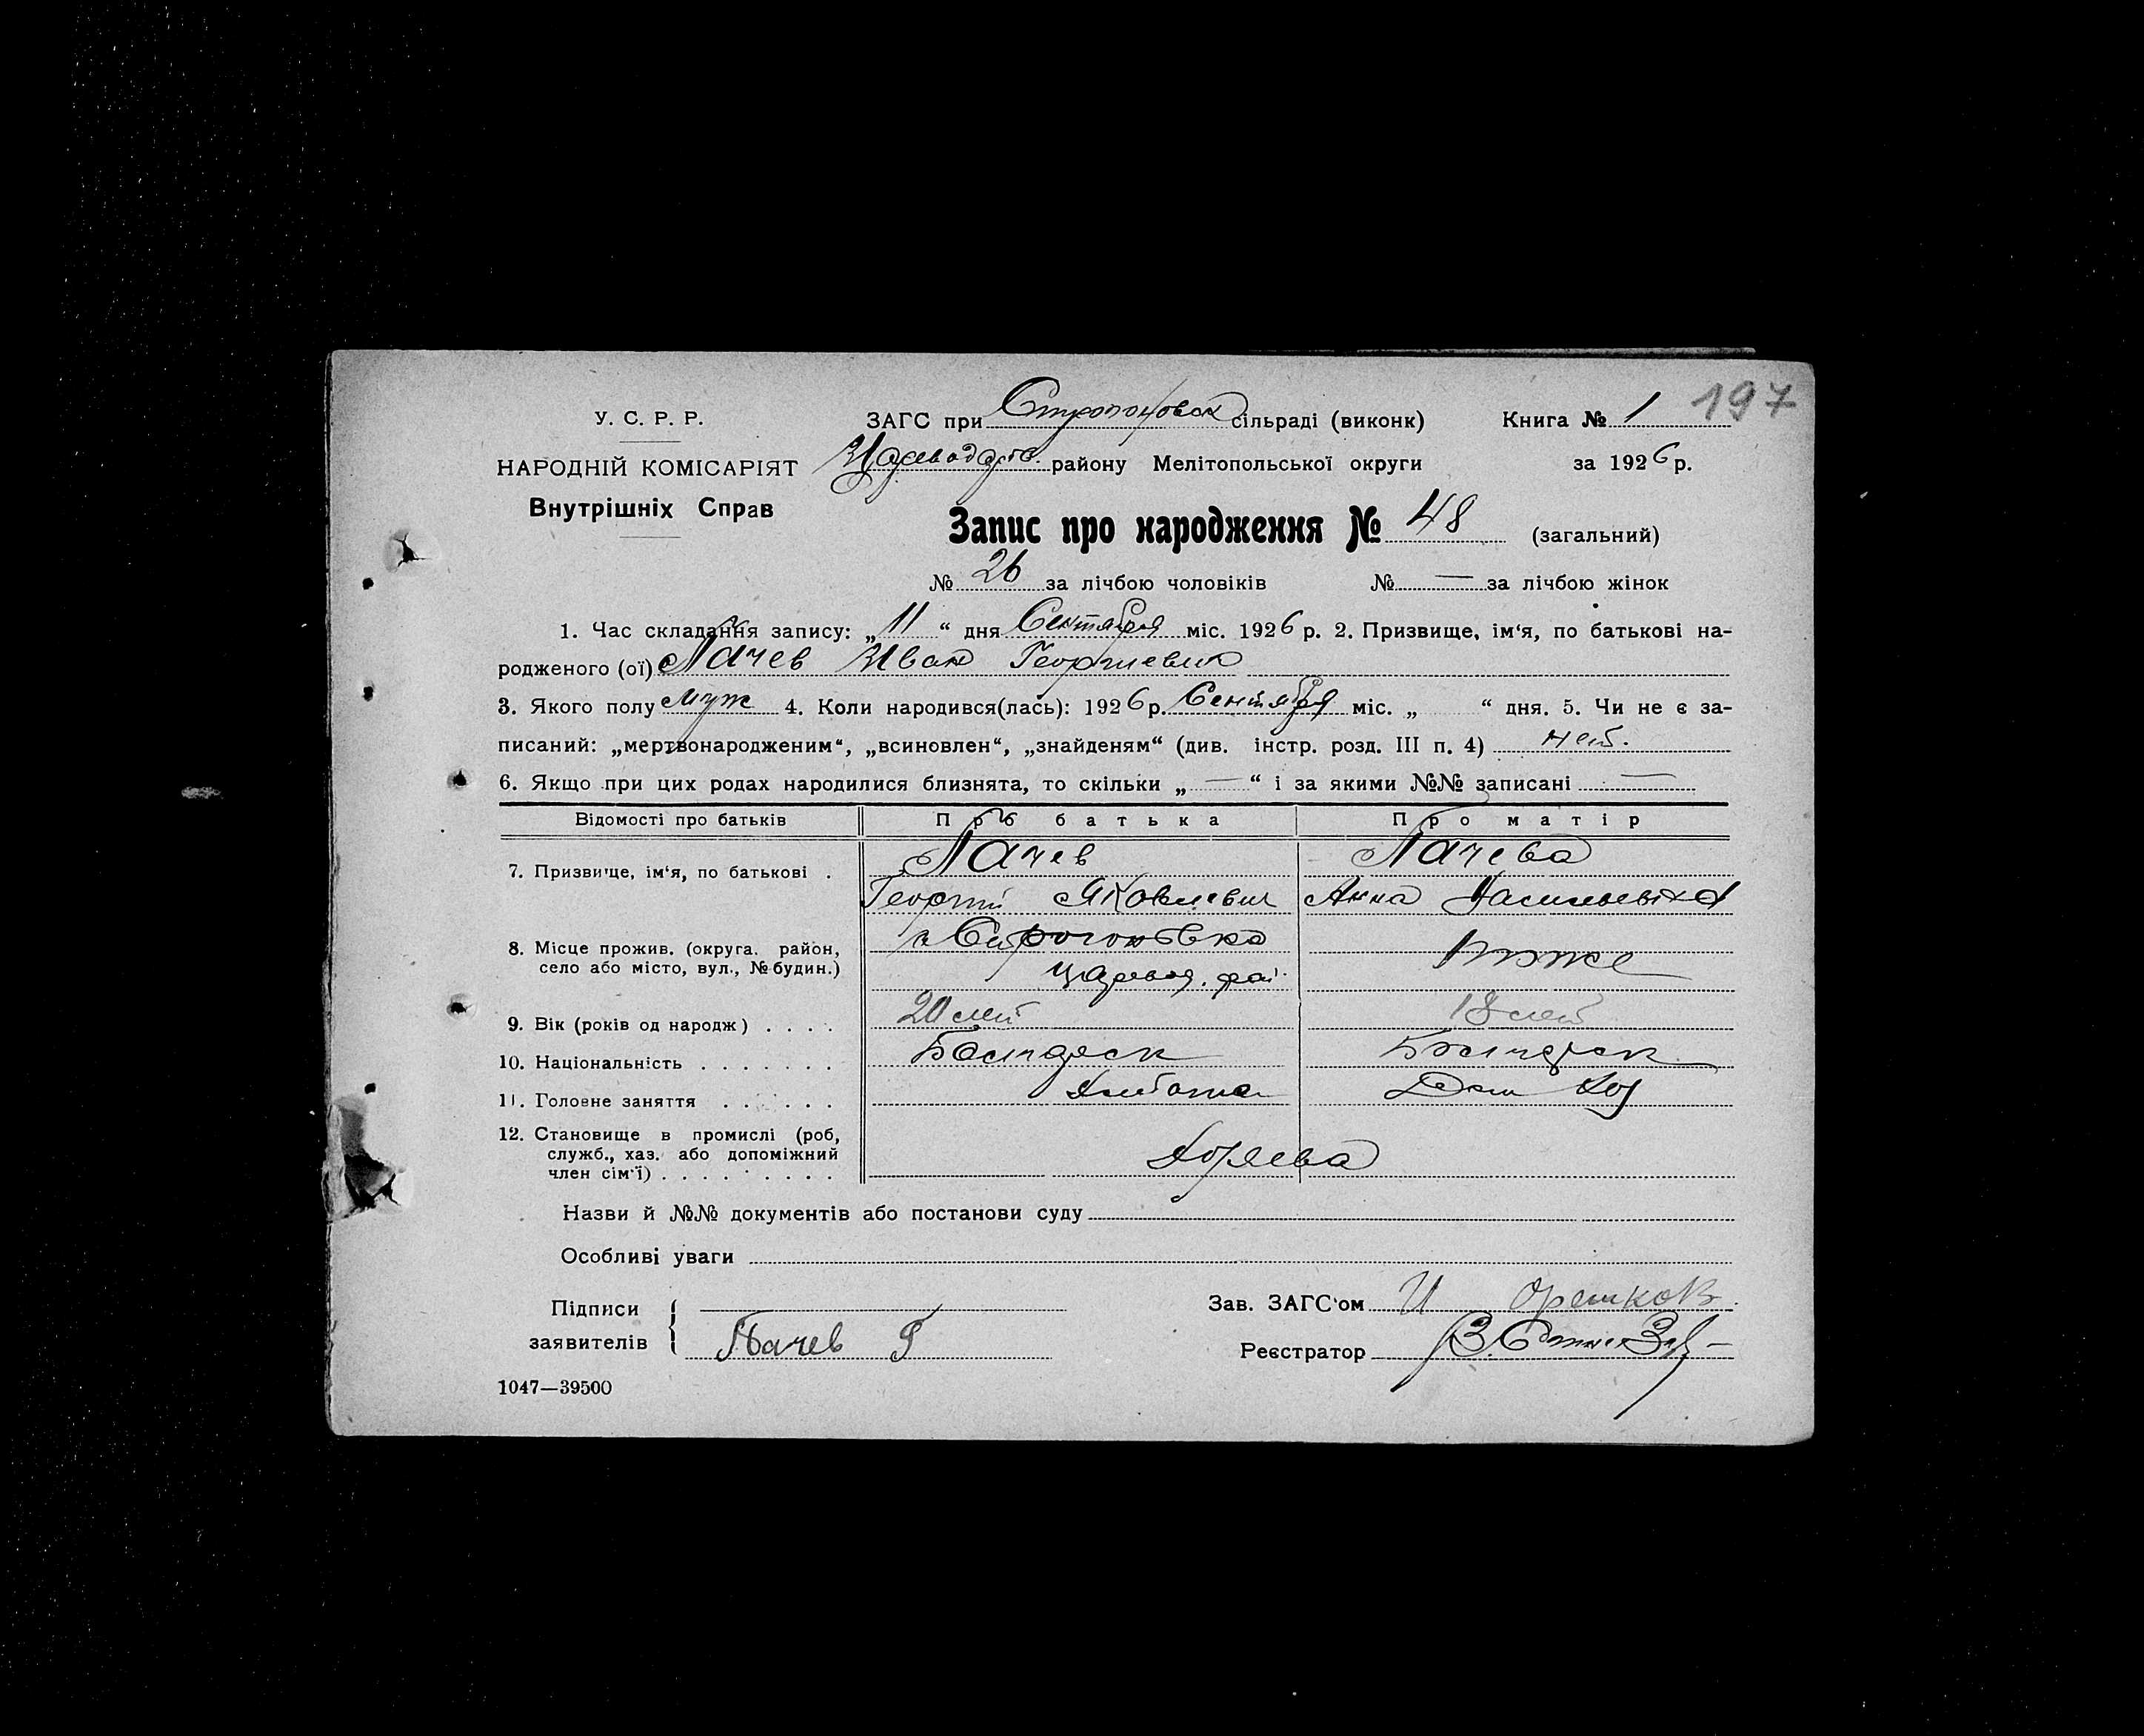 197
У. С. Р. Р.
ЗАГС при Строгоновск сільраді (виконк) Книга № 1
НАРОДНІЙ КОМІСАРІЯТ
Внутрішніх Справ
району Мелітопольської округи за 1926 р.
Запис про народження № 48 (загальний)
№ 26 за лічбою чоловіків № — за лічбою жінок
1. Час складання запису: „ 11 “ дня Сентября міс. 1926 р. 2. Призвище, ім‘я, по батькові на-
родженого (ої) Пачев Иван Георгиевич
3. Якого полу муж 4. Коли народився(лась): 1926 р. Сентября міс. „ “ дня. 5. Чи не є за-
писаний: „мертвонародженим“, „всиновлен“, „знайденям“ (див. інстр. розд. III п. 4) нет.
6. Якщо при цих родах народилися близнята, то скільки „ — “ і за якими №№ записані —
Відомості про батьків Про батька Про матір
7. Призвище, ім‘я, по батькові . Пачев Пачева
Георгий Яковлевич Анна Васильевна
8. Місце прожив. (округа. район, село або місто, вул., № будин.) с Строгоновка тоже
царевод. рай.
9. Вік (років од народж) . . . . 20 лет 18 лет
10. Національність . . . . . . . Болгарск Болгарск
11. Головне заняття . . . . . . Хлебопа Дом Хоз
12. Становище в промислі (роб, служб., хаз. або допоміжний член сім‘ї) . . . . . . . . .
Назви й №№ документів або постанови суду
Особливі уваги
Підписи заявителів Пачев Г
Зав. ЗАГС‘ом И Орешков
Реєстратор
1047—39500